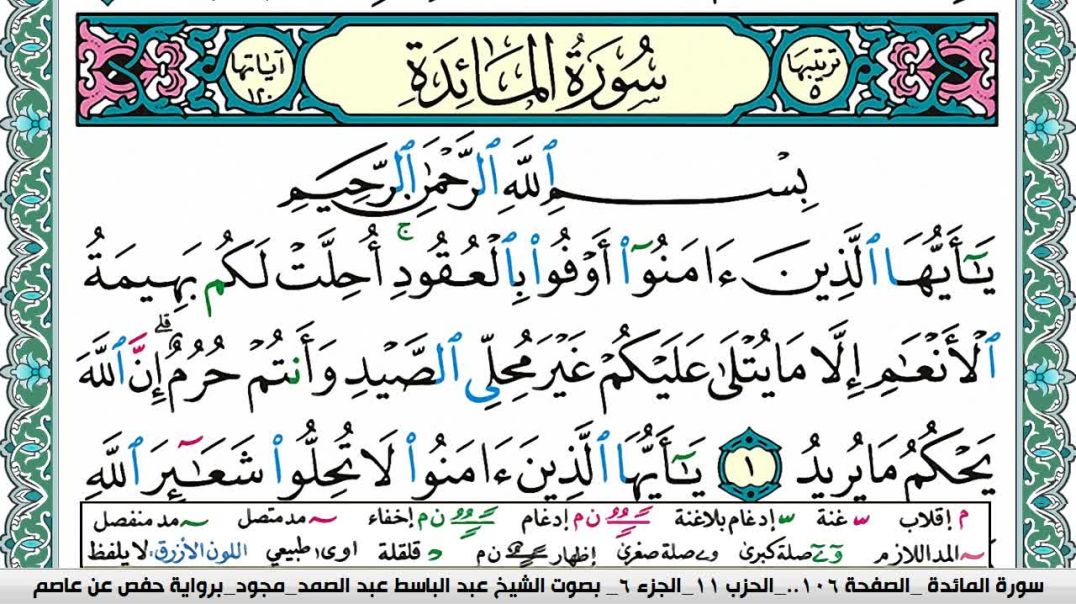 ترتيبها ٥
سُورَةُ المَائِدَةِ
آياتها ١٢٠
بِسْمِ ٱللَّهِ ٱلرَّحْمَٰنِ ٱلرَّحِيمِ
يَٰٓأَيُّهَا ٱلَّذِينَ ءَامَنُوٓا۟ أَوْفُوا۟ بِٱلْعُقُودِ ۚ أُحِلَّتْ لَكُم بَهِيمَةُ
ٱلْأَنْعَٰمِ إِلَّا مَا يُتْلَىٰ عَلَيْكُمْ غَيْرَ مُحِلِّى ٱلصَّيْدِ وَأَنتُمْ حُرُمٌ ۗ إِنَّ ٱللَّهَ
يَحْكُمُ مَا يُرِيدُ ١ يَٰٓأَيُّهَا ٱلَّذِينَ ءَامَنُوا۟ لَا تُحِلُّوا۟ شَعَٰٓئِرَ ٱللَّهِ
م إقلاب س غنة س إدغام بلاغنة ن م إدغام ن م إخفاء مد متصل مد منفصل
المد اللازم صلة كبرى صلة صغرى إظهار ن م د قلقلة اوى طبيعي اللون الأزرق: لا يلفظ
سورة المائدة _الصفحة ١٠٦.._الحزب ١١_الجزء ٦_ بصوت الشيخ عبد الباسط عبد الصمد_مجود_برواية حفص عن عاصم